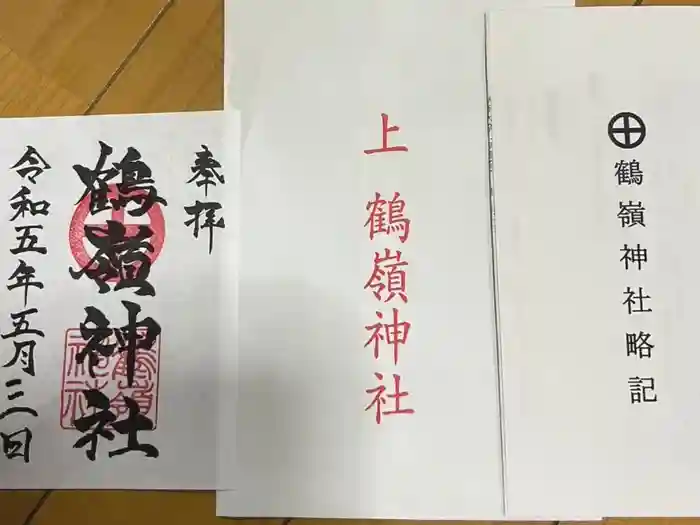 鶴嶺神社略記
上 鶴嶺神社
奉拝
鶴嶺神社
令和五年五月三日
鶴嶺
神社